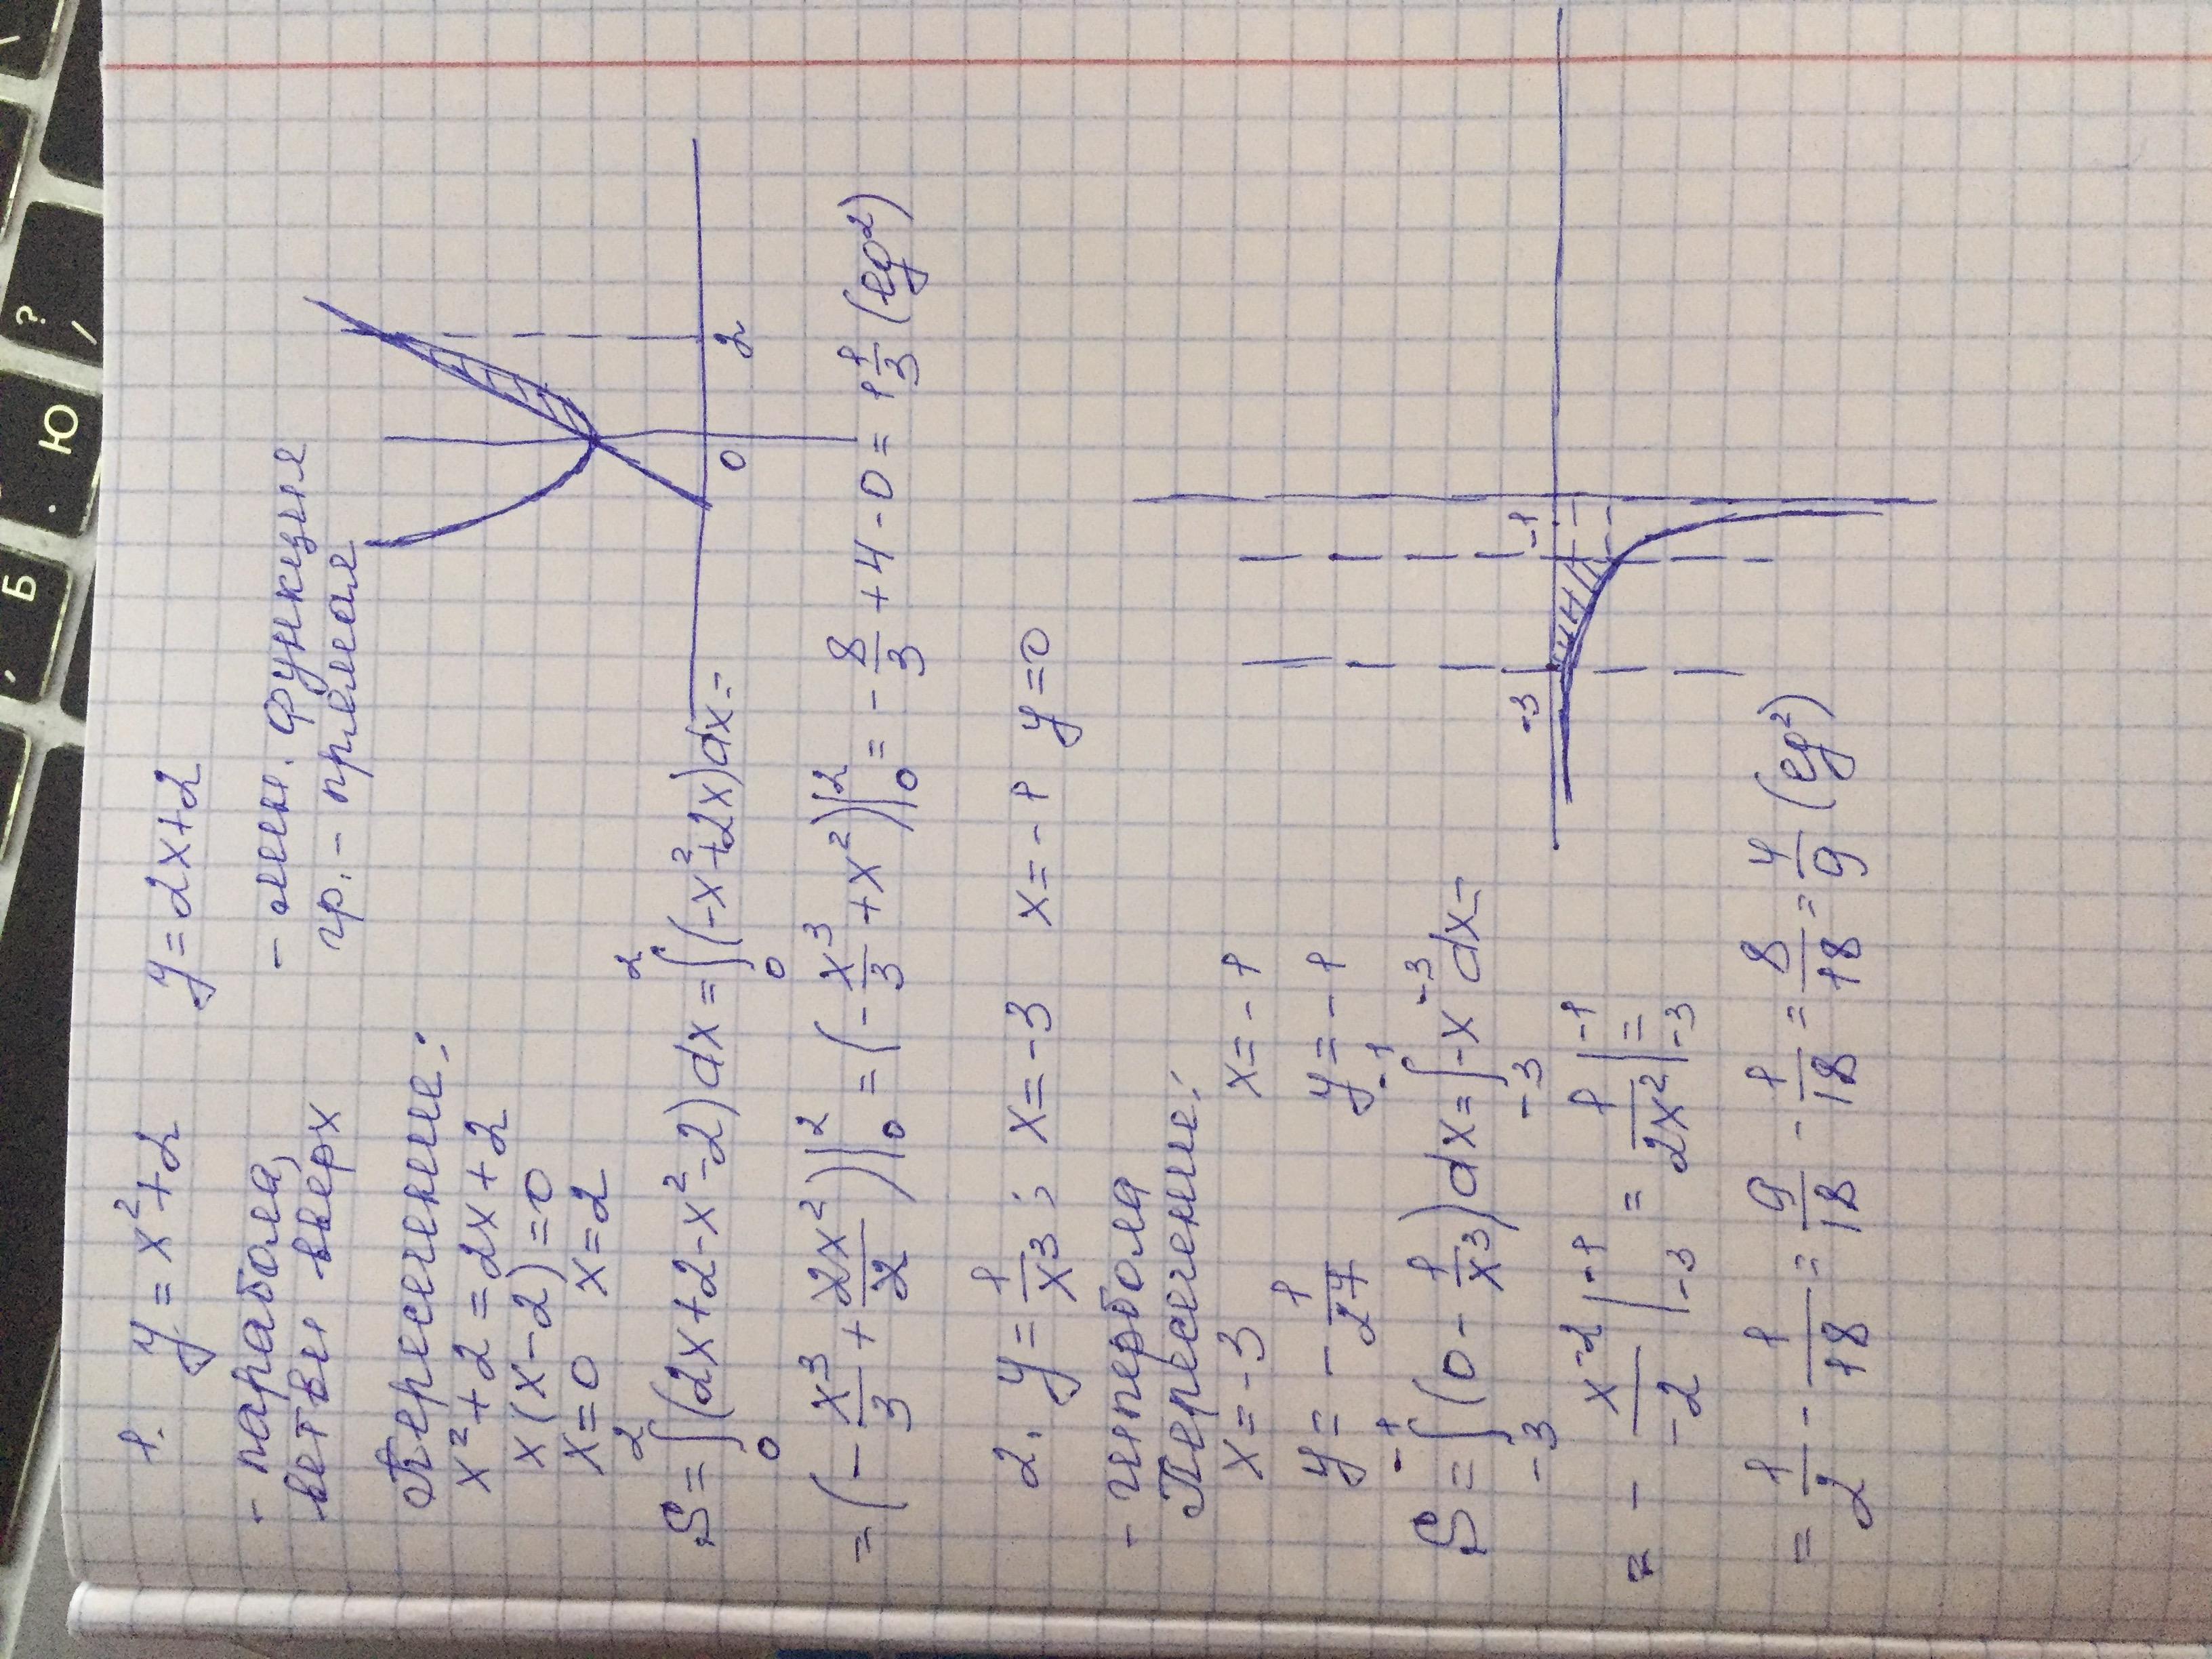 1. y = x²+2 y = 2x+2
- парабола, - лин. функция
ветви вверх гр. - прямая
Пересечение:
x²+2 = 2x+2
x(x-2)=0
x=0 x=2
0 2
S = ∫₀² (2x+2-x²-2)dx = ∫₀² (-x²+2x)dx =
= (-x³/3 + 2x²/2)|₀² = (-x³/3 + x²)|₀² = -8/3 + 4 - 0 = 1 1/3 (ед²)
2. y = 1/x³; x = -3 x = -1 y = 0
- гипербола
Пересечение:
x = -3 x = -1
y = -1/27 y = -1
-3 -1
S = ∫₋₃⁻¹ (0 - 1/x³)dx = ∫₋₃⁻¹ -x⁻³ dx =
= - x⁻²/-2 |₋₃⁻¹ = 1/2x² |₋₃⁻¹ =
= 1/2 - 1/18 = 9/18 - 1/18 = 8/18 = 4/9 (ед²)
?
/
Ю
.
Б
,